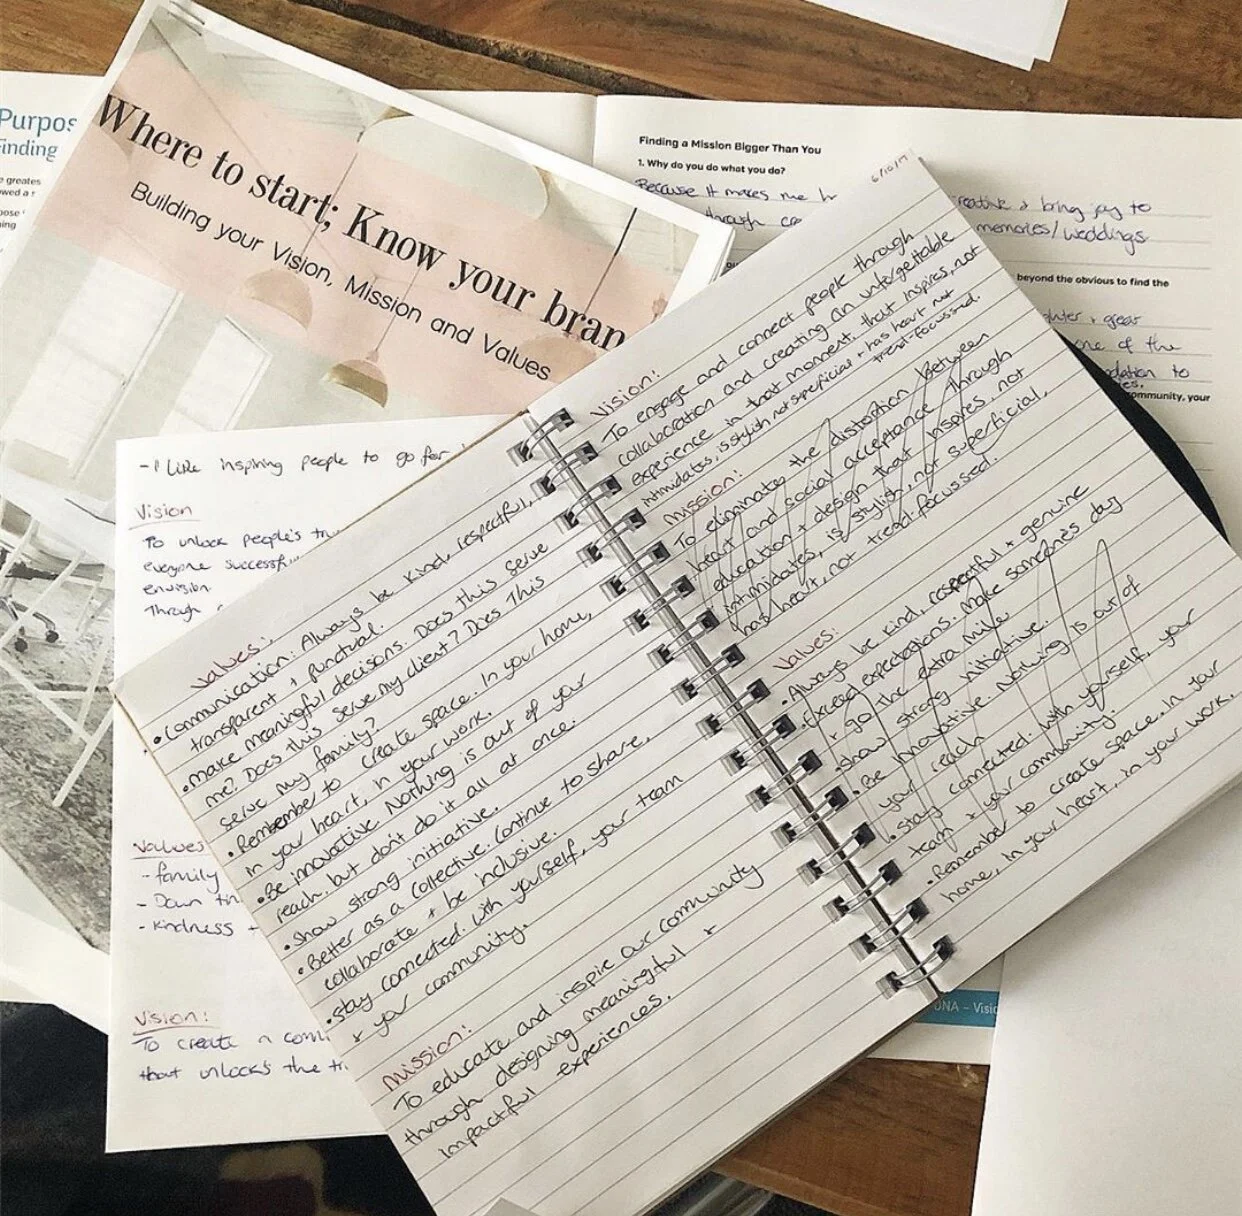 Purpos
inding
e greates
Where to start; Know your bran
Building your Vision, Mission and Values
Finding a Mission Bigger Than You
1. Why do you do what you do?
Because it makes me
through
creative + bring joy to
memories/weddings
beyond the obvious to find the
+ great
one of the
to
community, your
- I like inspiring people to go for
Vision
To unlock people's
everyone
envision
Through
Values
- family
- Down
- Kindness +
Vision:
To create a
that unlocks the
Values:
• Communication: Always be kind, respectful,
transparent + punctual.
• Make meaningful decisions. Does this serve
me? Does this serve my client? Does This
serve my family?
• Remember to create space. In your home,
in your heart, in your work.
• Be innovative. Nothing is out of your
reach, but don't do it all at once.
• Show strong initiative.
• Better as a collective. Continue to share,
collaborate + be inclusive.
• Stay connected. With yourself, your team
+ your community.
Mission:
To educate and inspire our community
through designing meaningful +
impactful experiences.
6/10/17
Vision:
To engage and connect people through
collaboration and creating an unforgettable
experience in that moment, that inspires, not
intimidates, is stylish not superficial + has heart not
trend-focussed.
Mission:
To eliminate the distortion between
heart and social acceptance through
education + design that inspires, not
intimidates, is stylish, not superficial,
has heart, not trend-focussed.
Values:
• Always be kind, respectful + genuine
• Exceed expectations. Make someone's day
+ go the extra mile
• Show strong initiative.
• Be innovative. Nothing is out of
your reach
• Stay connected. With yourself, your
team + your community.
• Remember to create space. In your
home, in your heart, in your work.
DNA – Visio